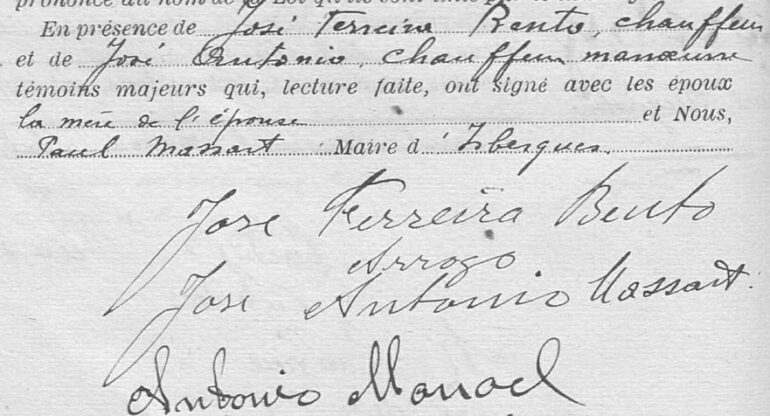 prononcé au nom de la Loi qu'ils sont unis par le mariage
En présence de José Ferreira Bento, chauffeur
et de José Antonio, chauffeur manœuvre
témoins majeurs qui, lecture faite, ont signé avec les époux
la mère de l'épouse et Nous,
Paul Massart Maire d'Isbergues.
Jose Ferreira Bento
Arrogo
Jose Antonio Massart.
Antonio Manoel